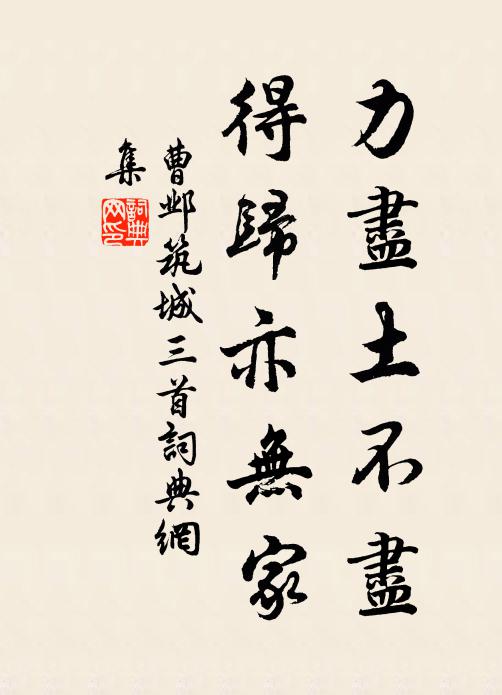 力盡土不盡
得歸亦無家
曹邺筑城三首詞典網
集
詞典
网印